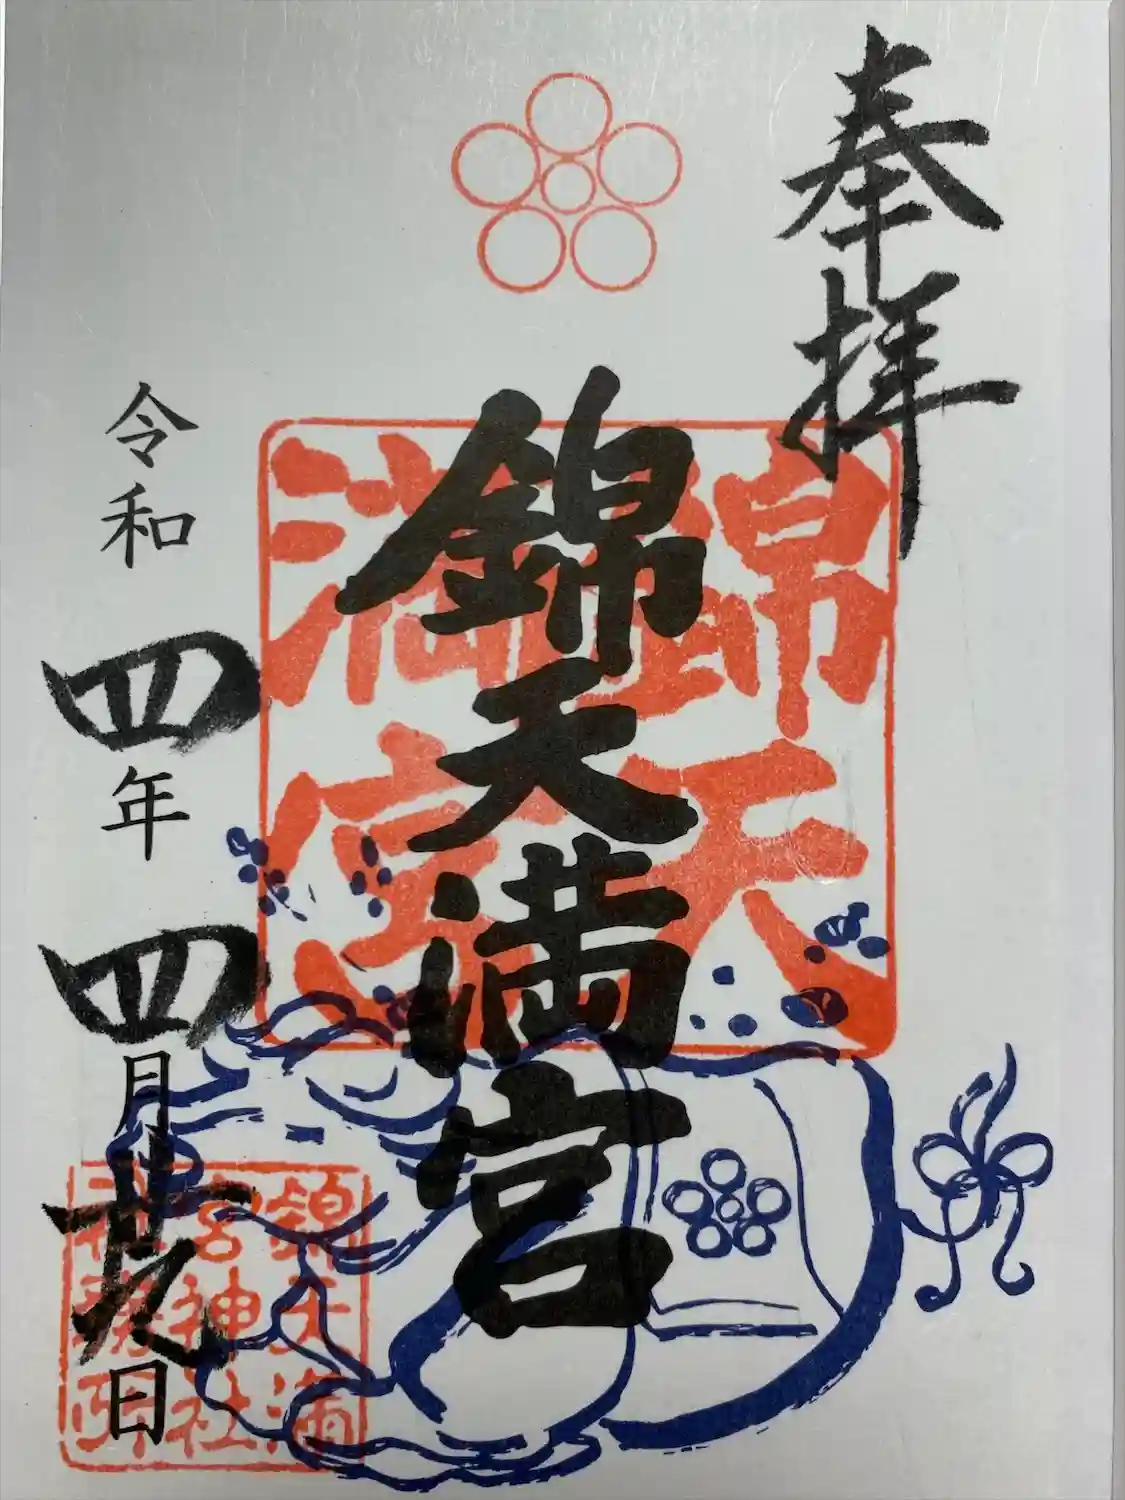 奉拝
錦天満宮
錦天
満宮
令和四年四月廿九日
錦天満
宮神社
社務所